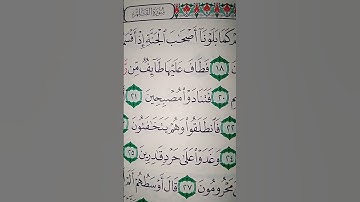 سورة القلم
كما بلونا أصحب الجنة إذ أقسم
١٨ فطاف عليها طائف من ر
٢٠ فتنادوا مصبحين ٢١
فانطلقوا وهم يتخفتون ٢٣
٢٤ وغدوا على حرد قدرين ٢٥
محرومون ٢٧ قال أوسطهم أل